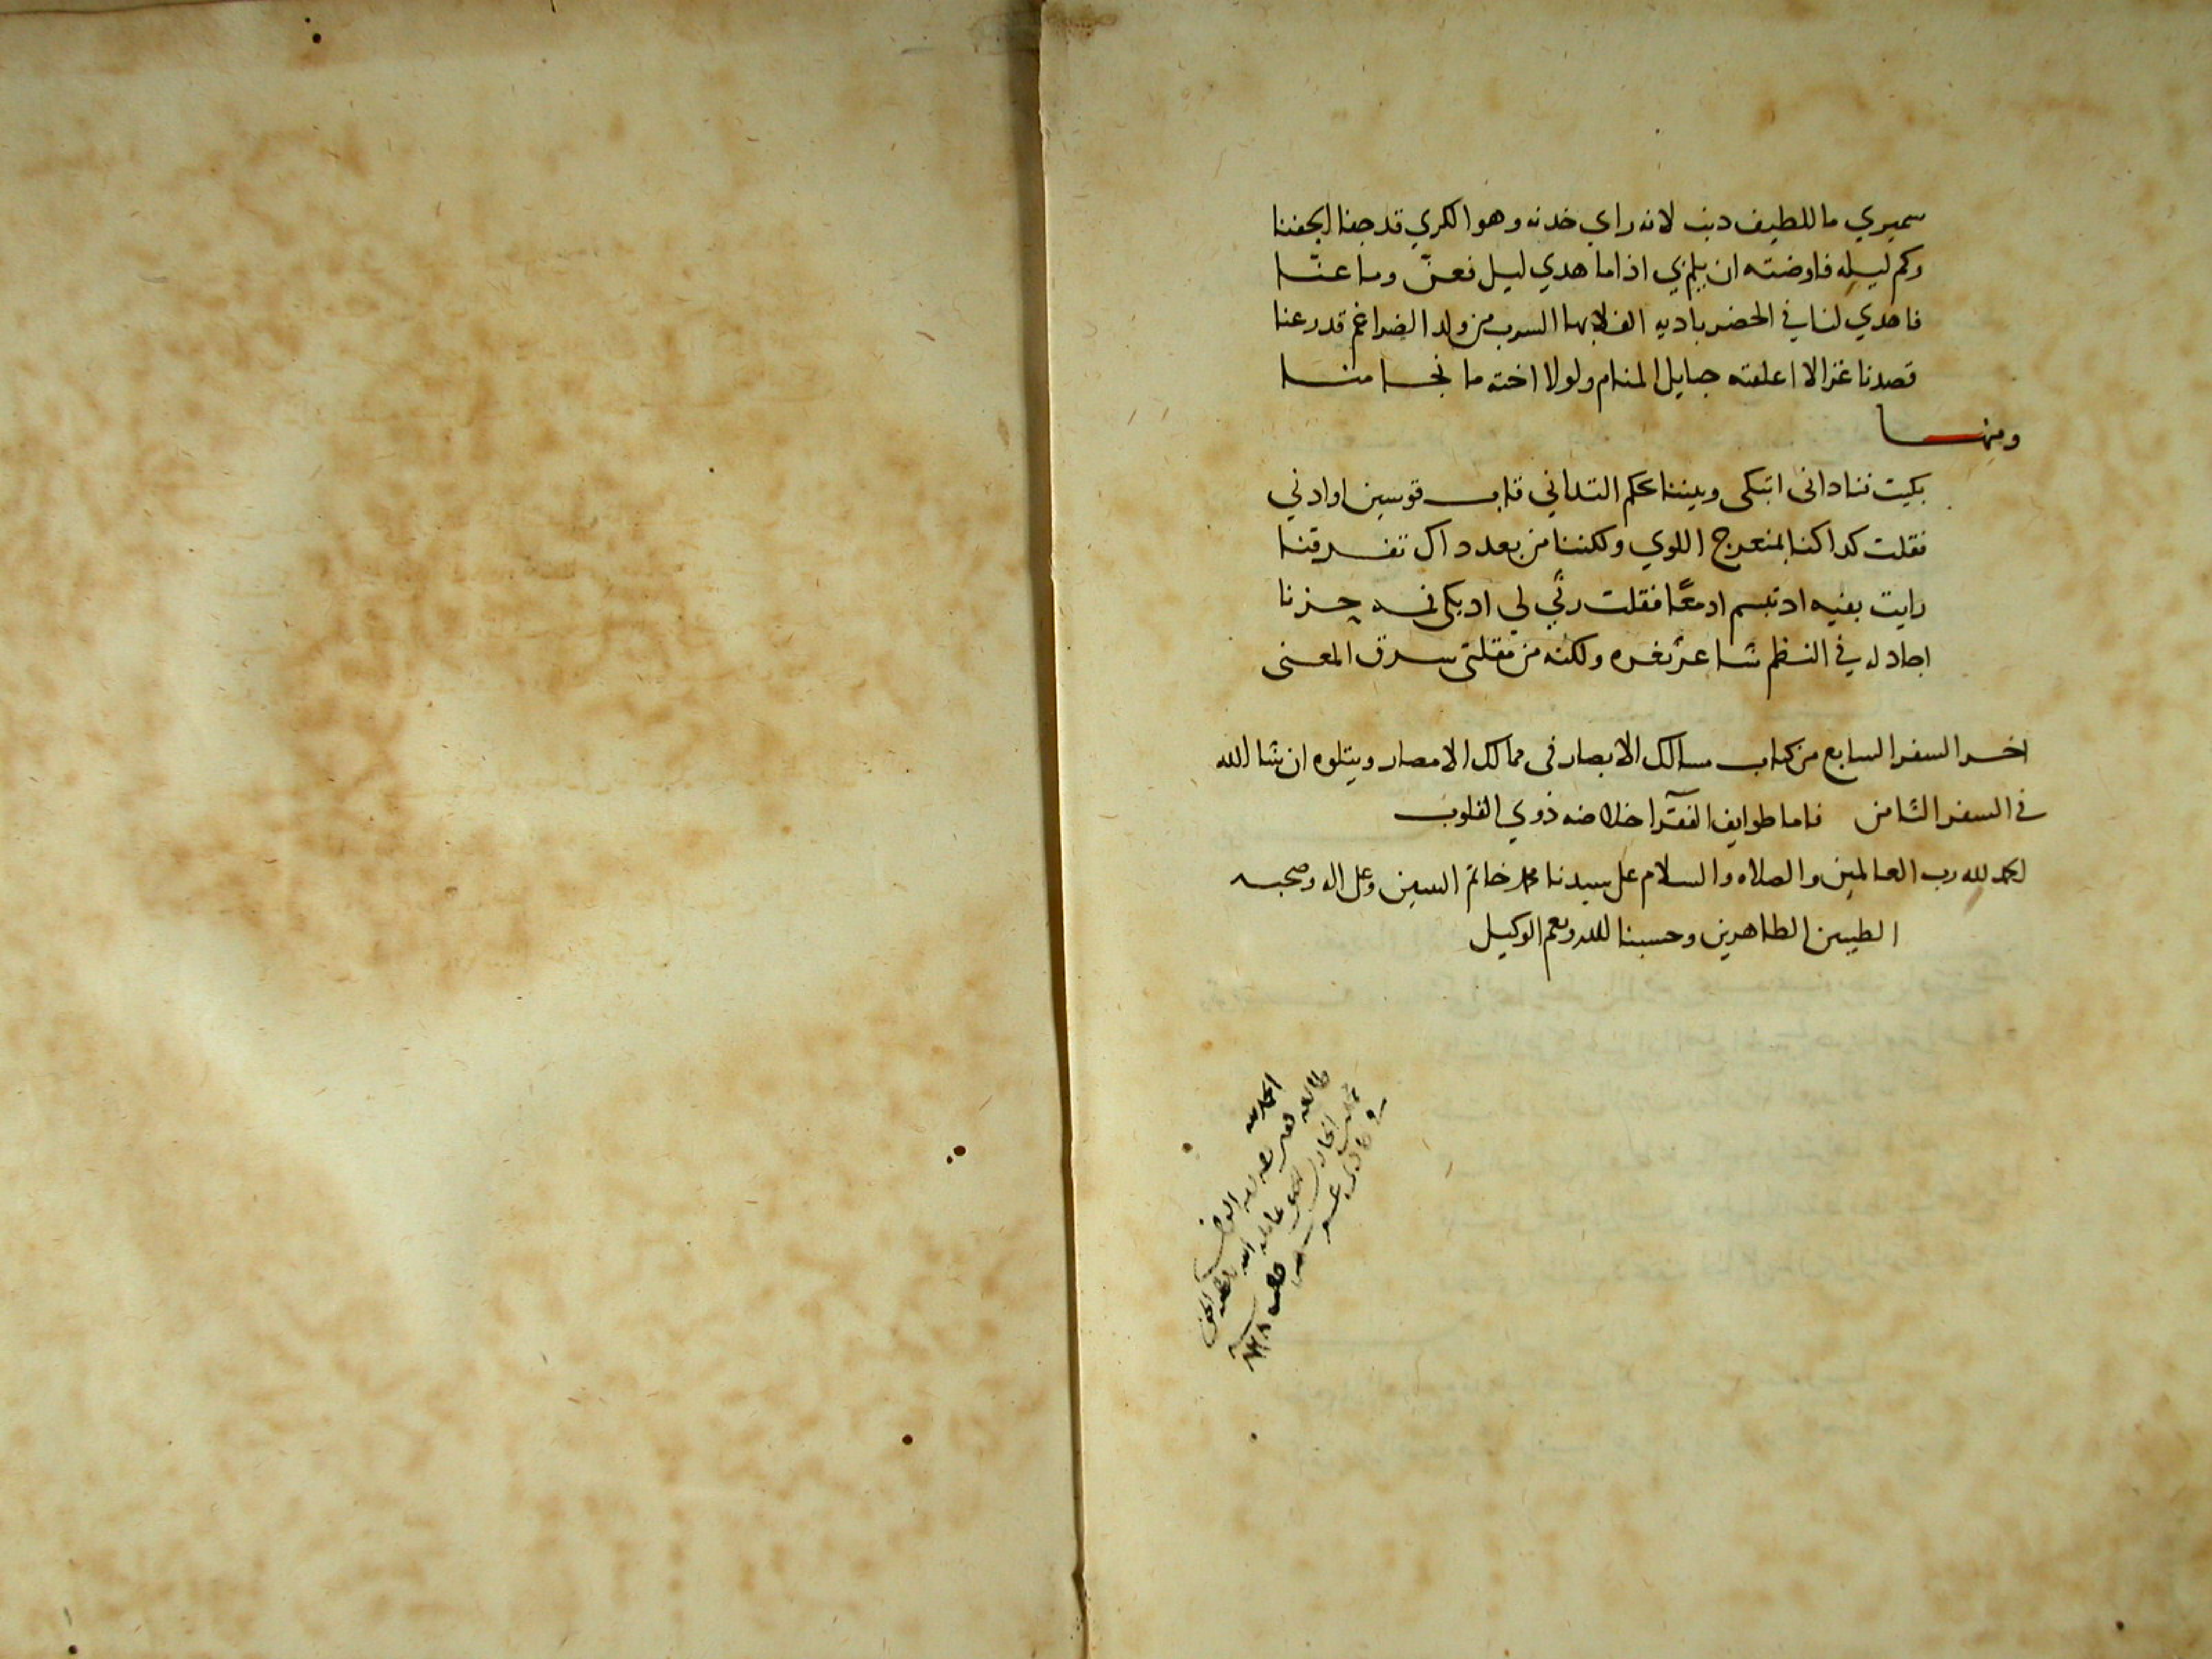 سميري ما للطيف دنب لانه راي خدنه وهو الكري قد جفا الجفنا
وكم ليله فاوضته ان يلم بي اذا ما هدي ليل فعنّ وما عنّا
فاهدي لنا في الحضر باديه الفلا بها السرب من ولد الضراغم قد رعنا
قصدنا غزالا اعلقته حبايل المنام ولولا اخته ما نجا منا
ومنها
بكيت فناداني اتبكي وبيننا بحكم التداني قاب قوسين او ادني
فقلت كدا كنا بمنعرج اللوي ولكننا من بعد داك تفرقنا
رايت بفيه اد تبسم ادمعًا فقلت رثي لي اد بكي فمه حزنا
اجادله في النظم شاعر ثغره ولكنه من مقلتي سرق المعنى
اخر السفر السابع من كتاب مسالك الابصار في ممالك الامصار ويتلوه ان شا الله
في السفر الثامن فاما طوايف الفقرآ خلاصه ذوي القلوب
الحمد لله رب العالمين والصلاه والسلام على سيدنا محمد خاتم النبيين وعلى اله وصحبه
الطيبين الطاهرين وحسبنا الله ونعم الوكيل
الحمد لله